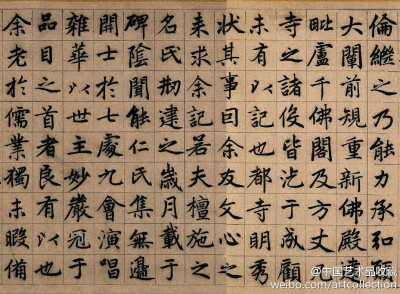 倫繼之乃能力承弘願
大闡前規重新佛殿建
毗盧千佛閣及方丈凡
寺之諸役皆汔于成顧
未有以記也都寺明秀
狀其事曰余友文心之
来求余記若夫檀施之
名氏刱建之歲月載于
碑陰聞能仁氏集無邊
開士於七處九會演唱
雜華以世主妙嚴冠于
品目之首者良有以也
余老於儒業獨未暇備
@中国艺术品收藏
weibo.com/artcollection